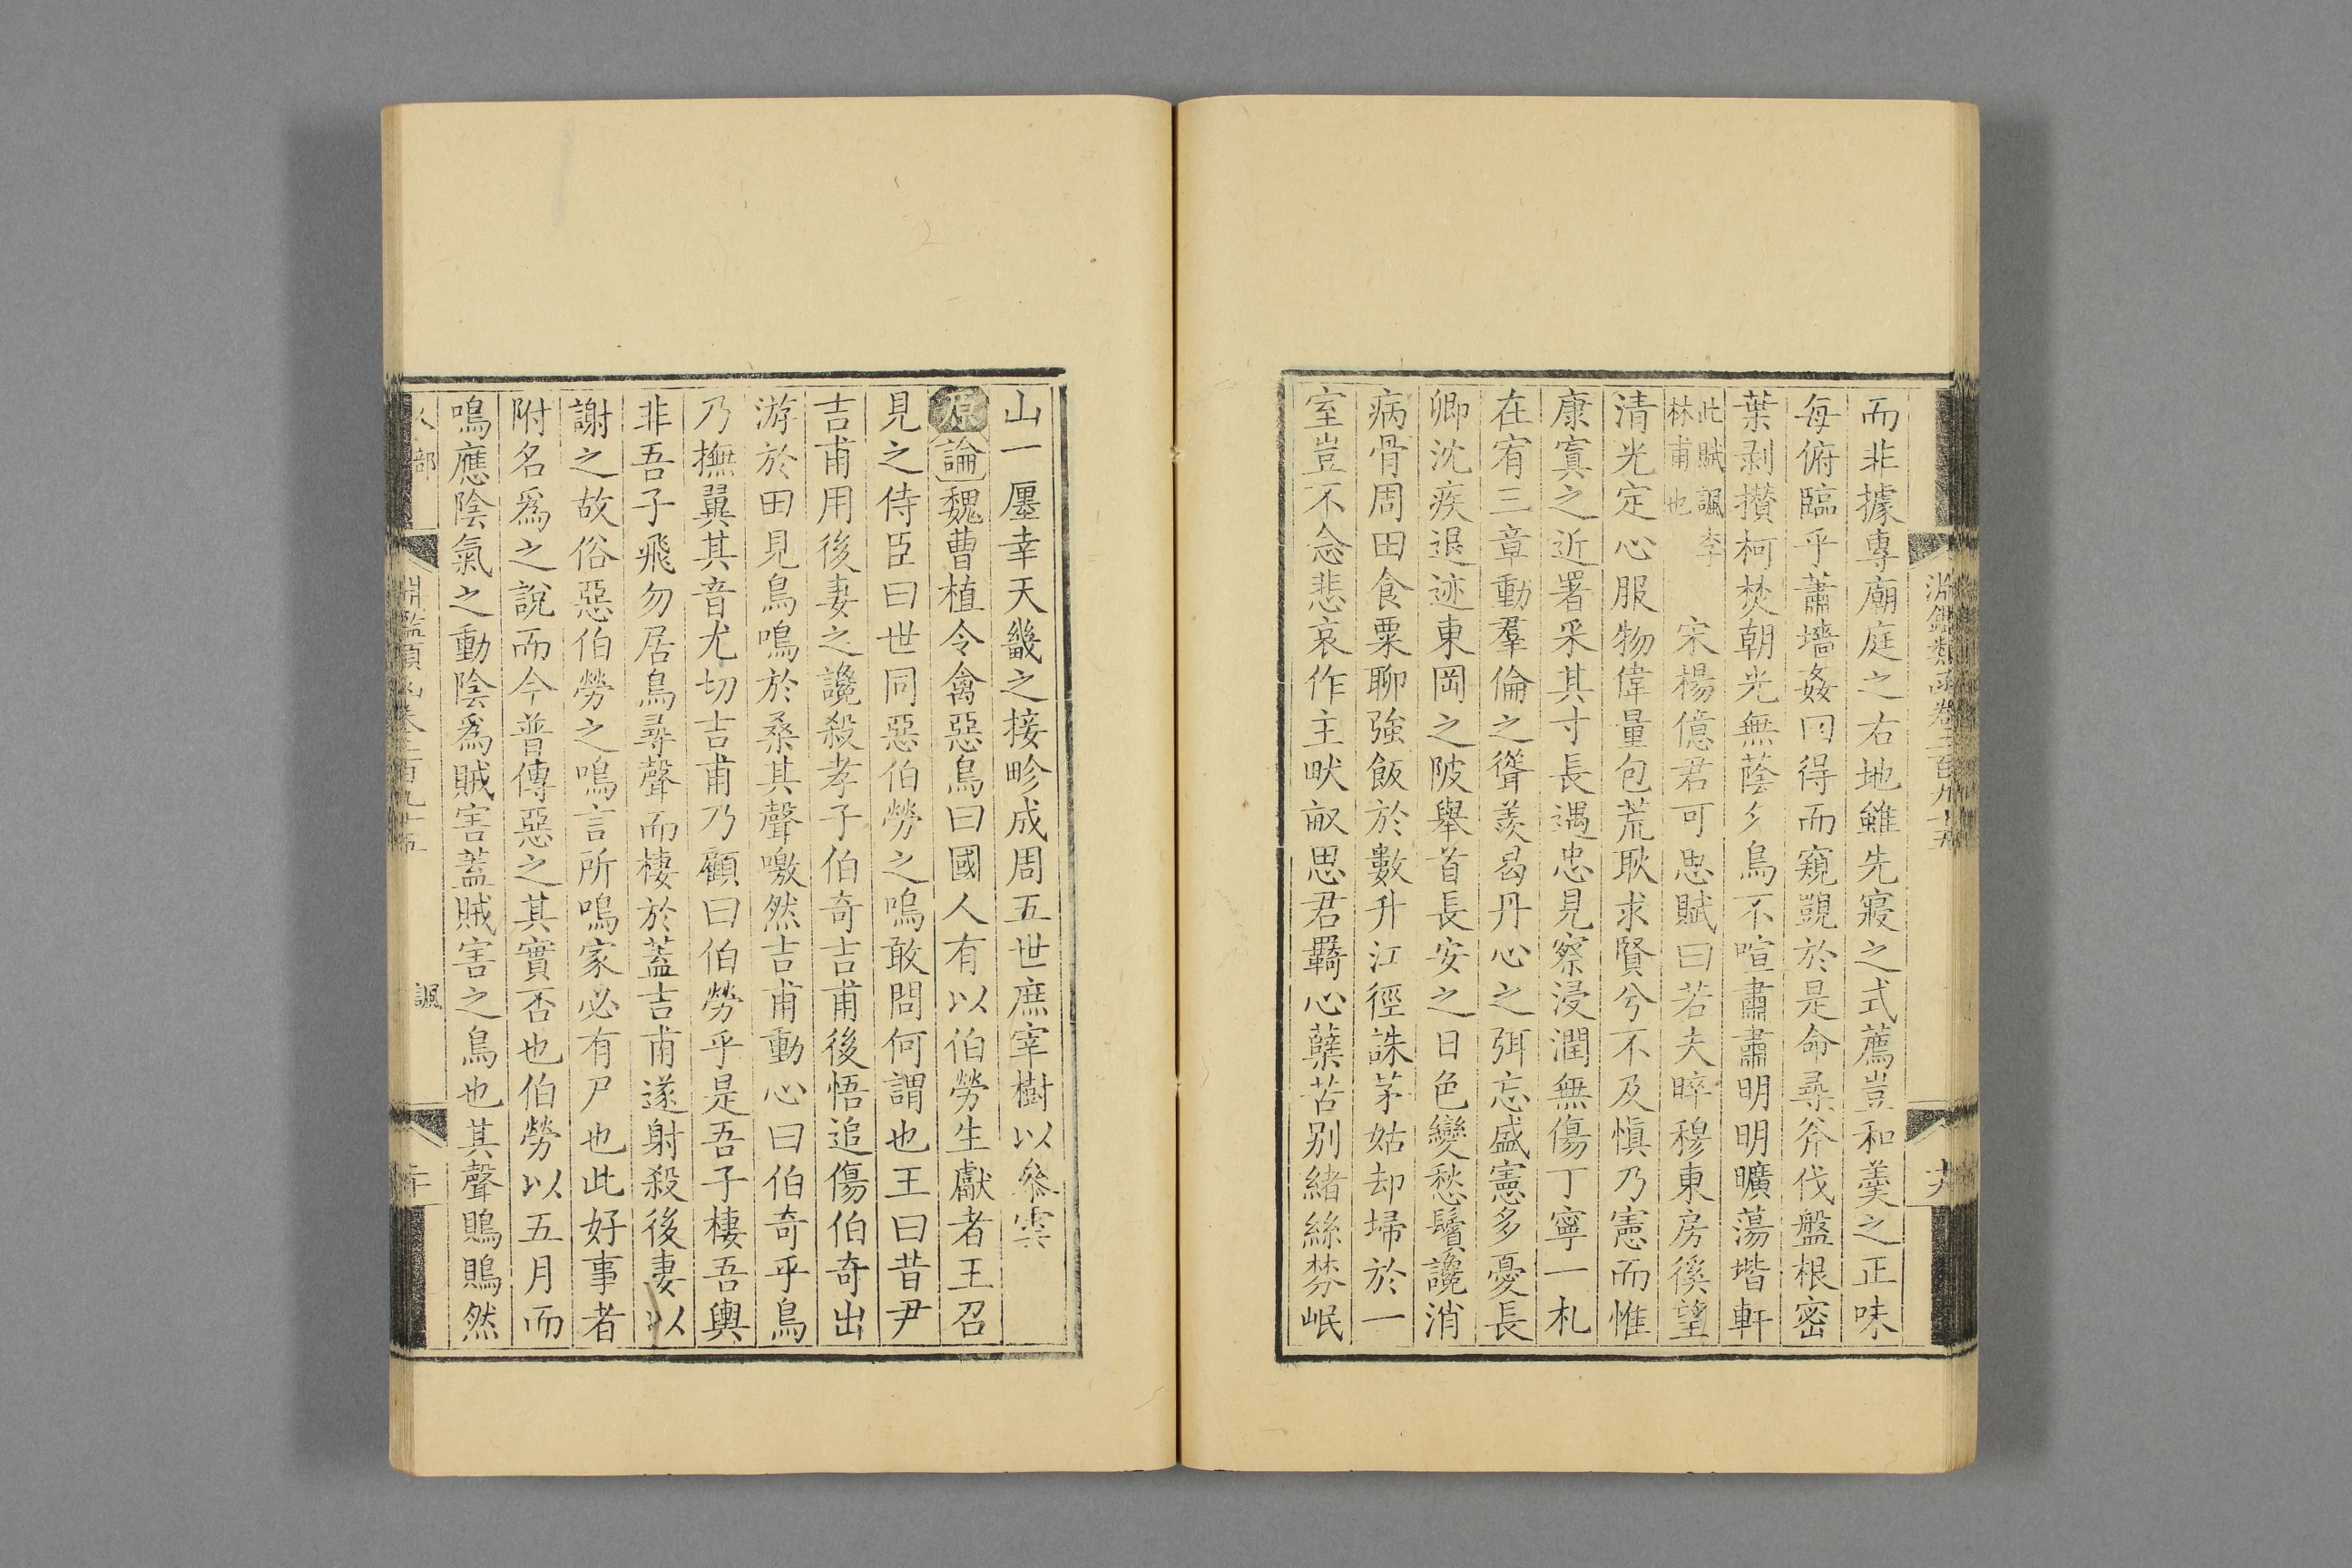 淵鑑類函卷三百九十五
十九
而非據專廟庭之右地雖先寢之式薦豈和羹之正味
每俯臨乎蕭墻姦囘得而窺覬於是命尋斧伐盤根密
葉剥攅柯焚朝光無蔭夕鳥不喧肅肅明明曠蕩堦軒
此賦諷李
林甫也
宋楊億君可思賦曰若夫晬穆東房徯望
清光定心服物偉量包荒耿求賢兮不及愼乃憲而惟
康寘之近署采其寸長遇忠見察浸潤無傷丁寧一札
在宥三章動羣倫之聳羨曷丹心之弭忘盛憲多憂長
卿沈疾退迹東岡之陂舉首長安之日色變愁鬢讒消
病骨周田食粟聊強飯於數升江徑誅茅姑却埽於一
室豈不念悲哀作主畎畝思君羇心蘖苦别緒絲棼岷
山一廛幸天畿之接畛成周五世庶宰樹以叅雲
原論魏曹植令禽惡鳥曰國人有以伯勞生獻者王召
見之侍臣曰世同惡伯勞之鳴敢問何謂也王曰昔尹
吉甫用後妻之讒殺孝子伯奇吉甫後悟追傷伯奇出
游於田見鳥鳴於桑其聲噭然吉甫動心曰伯奇乎鳥
乃撫翼其音尤切吉甫乃顧曰伯勞乎是吾子棲吾輿
非吾子飛勿居鳥尋聲而棲於蓋吉甫遂射殺後妻以
謝之故俗惡伯勞之鳴言所鳴家必有尸也此好事者
附名爲之說而今普傳惡之其實否也伯勞以五月而
鳴應陰氣之動陰爲賊害蓋賊害之鳥也其聲鵙鵙然
人部
淵鑑類函卷三百九十五
諷
二十